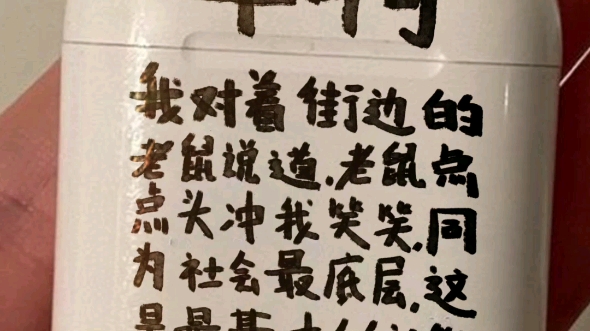 我对着街边的
老鼠说道,老鼠点
点头冲我笑笑,同
为社会最底层,这
是最基